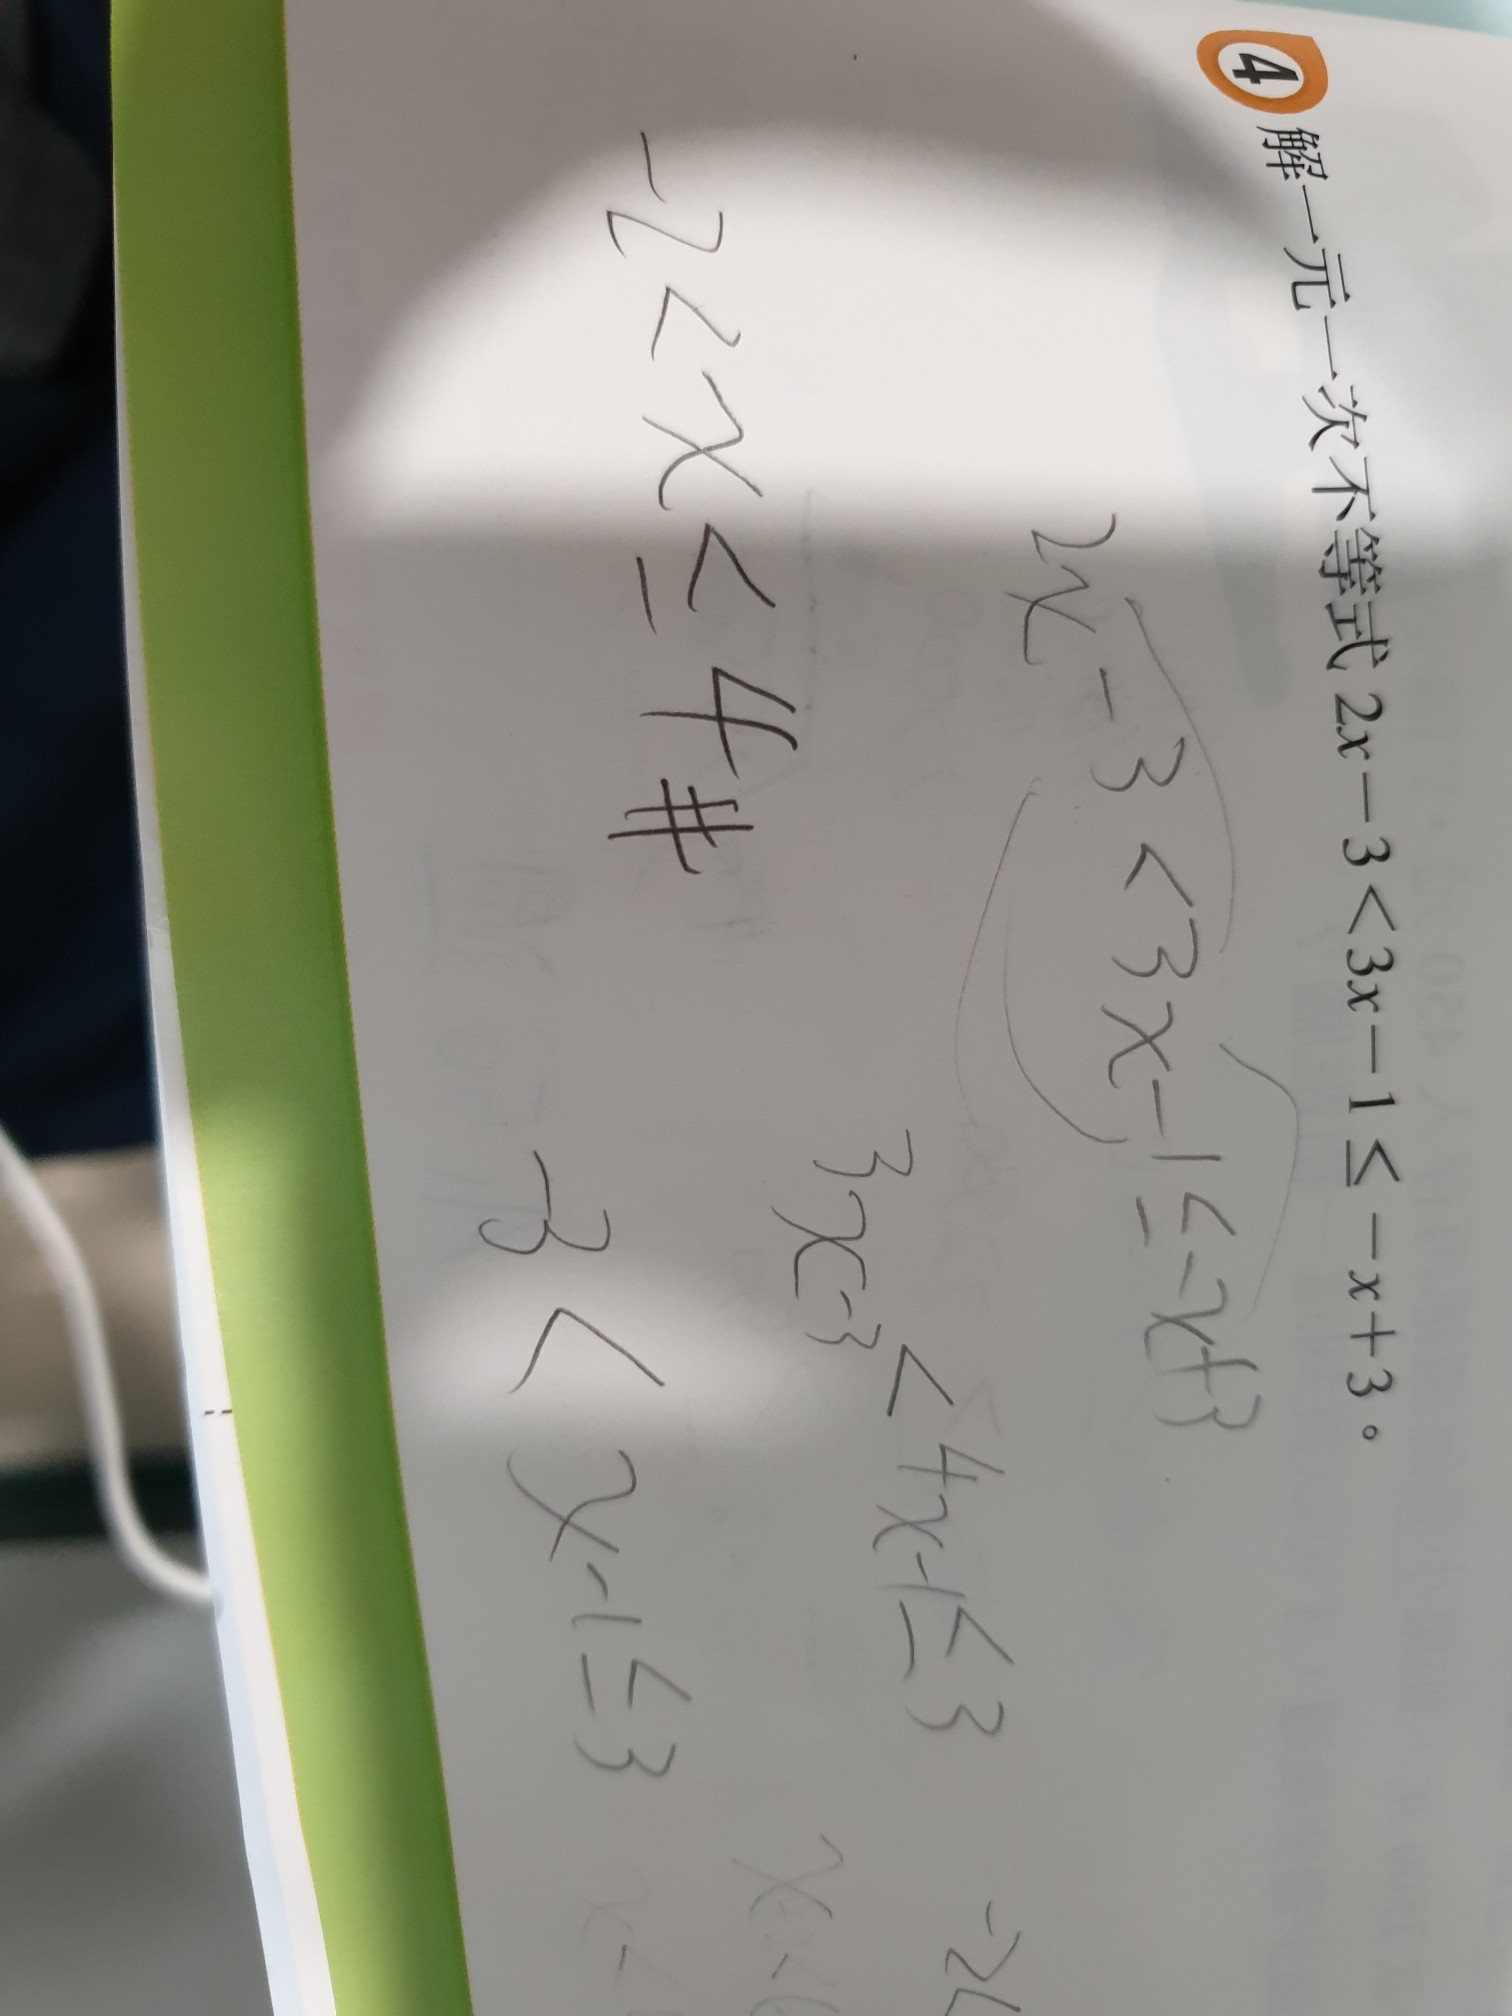 4 解一元一次不等式 2x-3<3x-1≤-x+3。
2x-3<3x-1≤-x+3
3x-3<4x-1≤3
-2<x≤4#
-3<x-1≤3